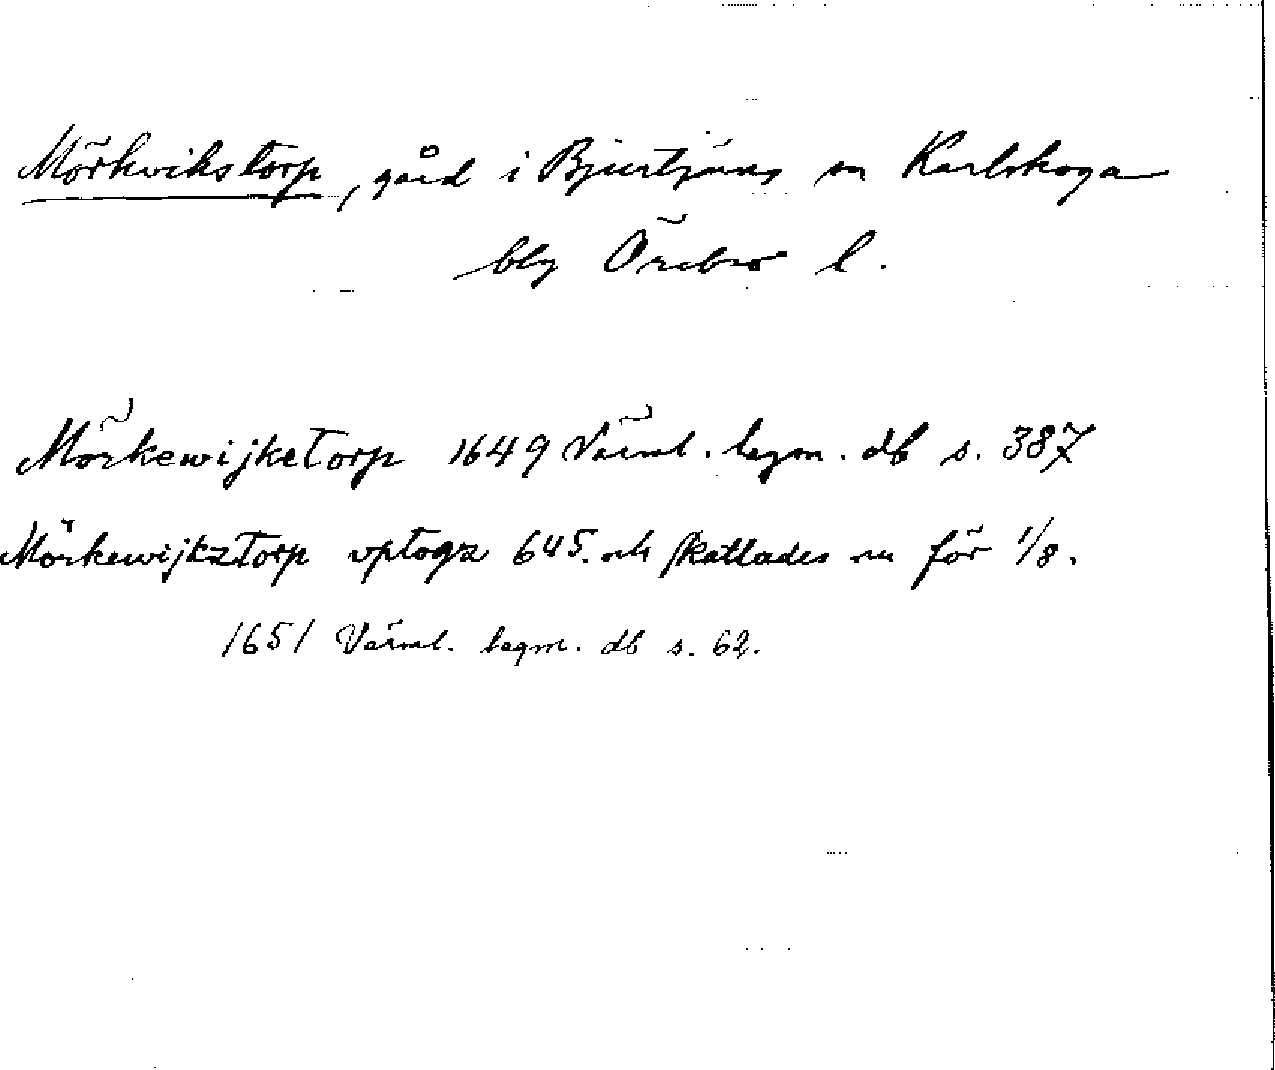 Mörkvikstorp, gård i Bjurtjärns sn Karlskoga
blg Örebro l.
Mörkewijketorp 1649 Värml. bergm. db s. 387
Mörkewijkztorp vptogz 645. och skattades nu för 1/8.
1651 Värml. bergm. db s. 62.